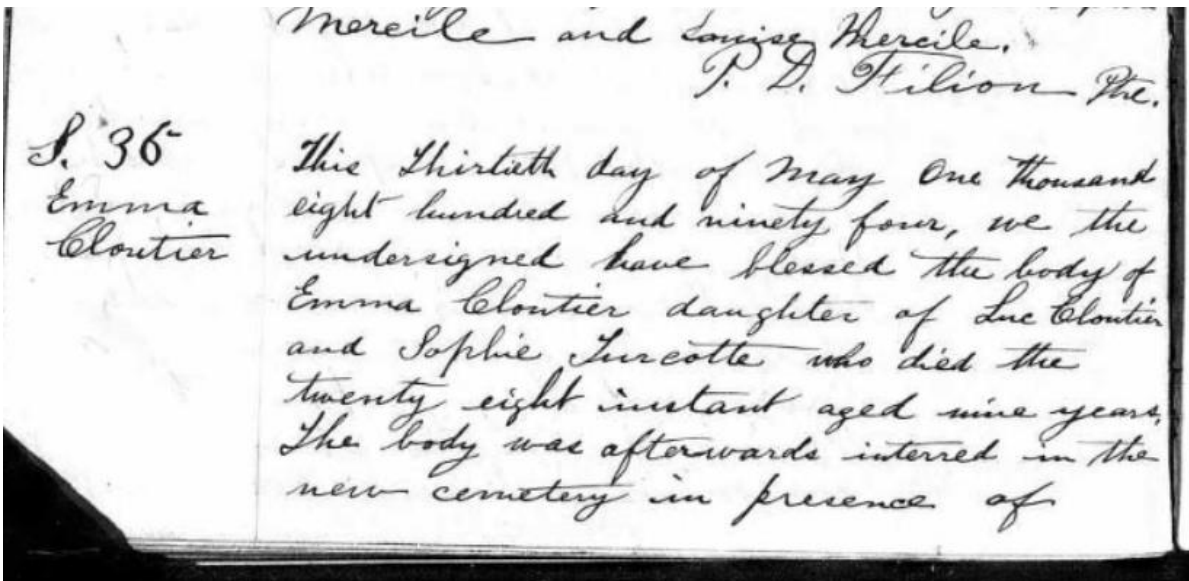 Mercile and Louise Mercile.
P. D. Filion Ptre.
S. 36
Emma
Cloutier
This Thirtieth day of May One Thousand
eight hundred and ninety four, we the
undersigned have blessed the body of
Emma Cloutier daughter of Luc Cloutier
and Sophie Turcotte who died the
twenty eight instant aged nine years.
The body was afterwards interred in the
new cemetery in presence of